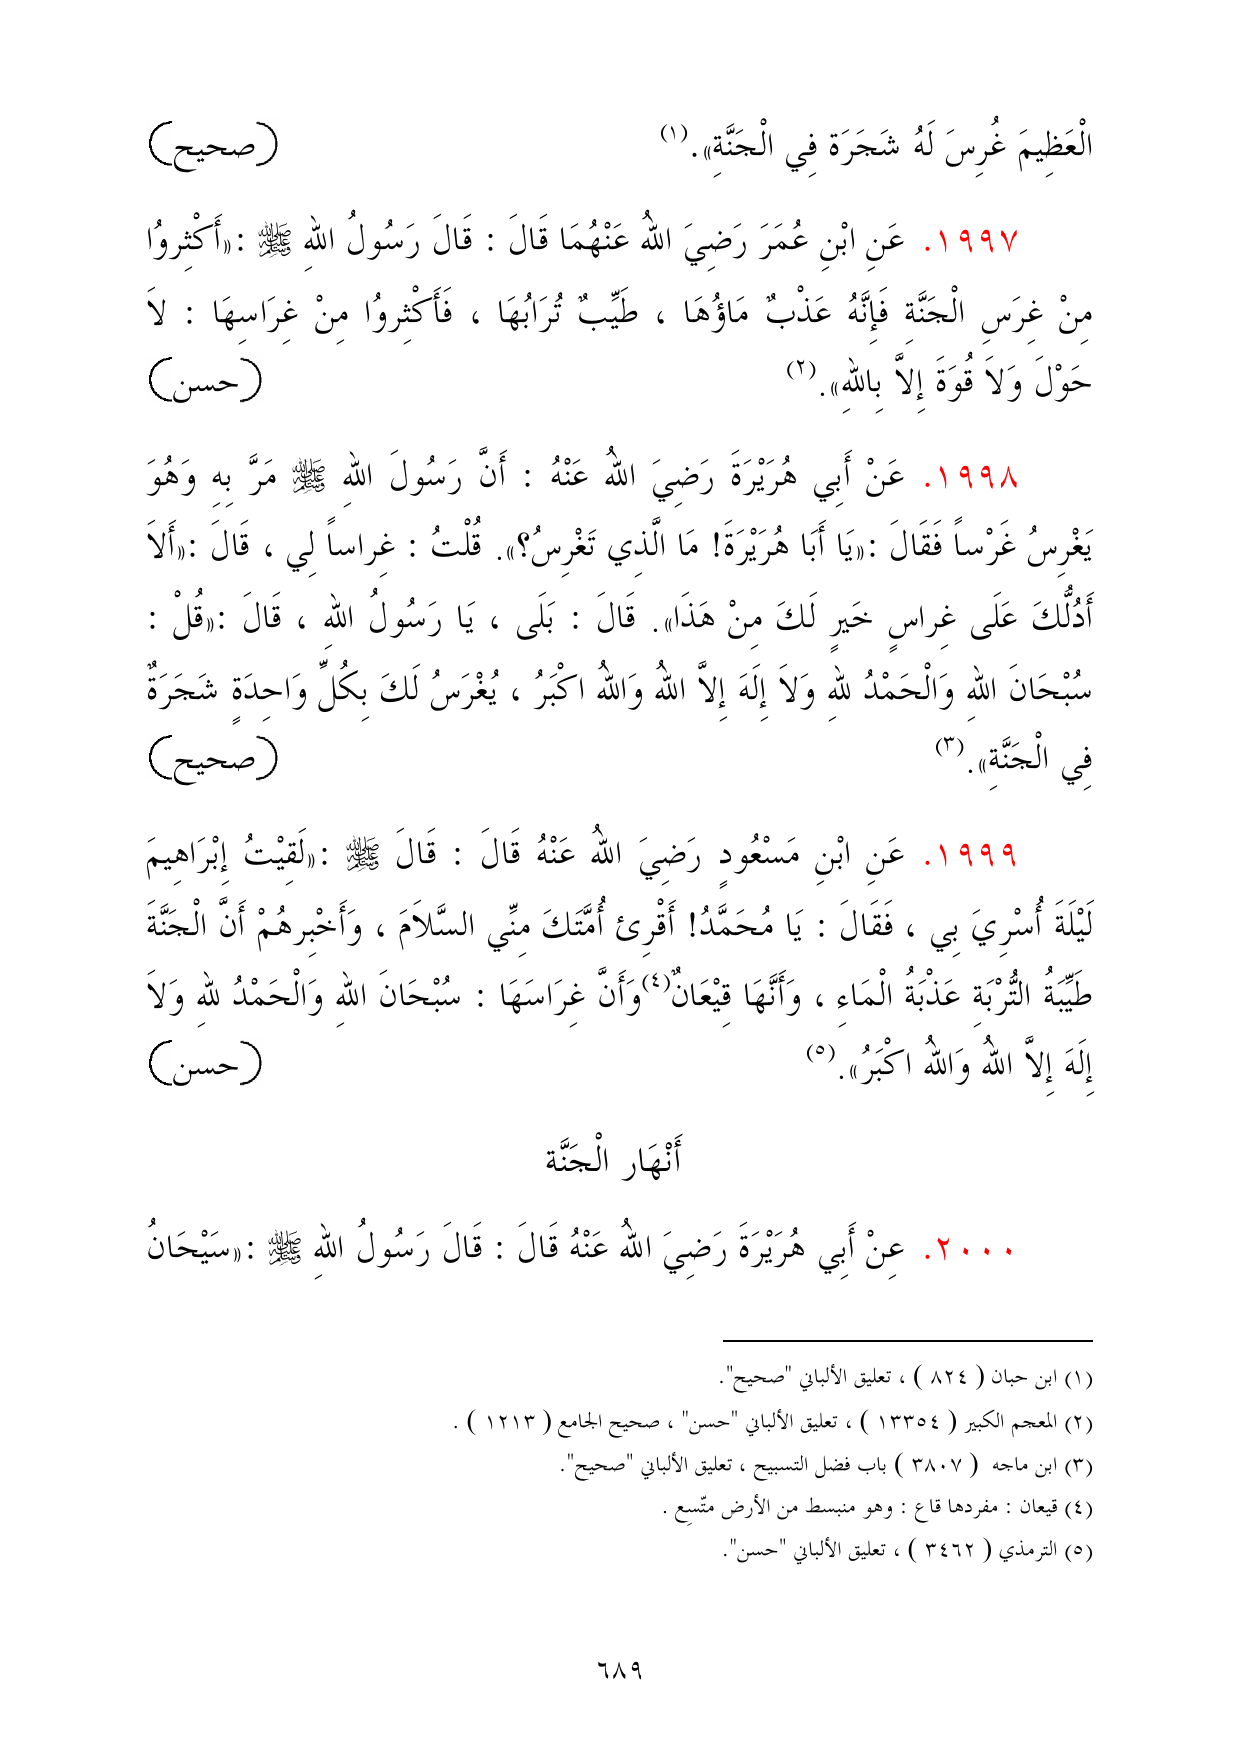 الْعَظِيمَ غُرِسَ لَهُ شَجَرَة فِي الْجَنَّةِ». (١) (صحيح)
١٩٩٧. عَنِ ابْنِ عُمَرَ رَضِيَ اللهُ عَنْهُمَا قَالَ : قَالَ رَسُولُ اللهِ ﷺ :«أَكْثِروُا
مِنْ غِرَسِ الْجَنَّةِ فَإِنَّهُ عَذْبٌ مَاؤُهَا ، طَيِّبٌ تُرَابُهَا ، فَأَكْثِروُا مِنْ غِرَاسِهَا : لاَ
حَوْلَ وَلاَ قُوَةَ إِلاَّ بِاللهِ». (٢) (حسن)
١٩٩٨. عَنْ أَبِي هُرَيْرَةَ رَضِيَ اللهُ عَنْهُ : أَنَّ رَسُولَ اللهِ ﷺ مَرَّ بِهِ وَهُوَ
يَغْرِسُ غَرْساً فَقَالَ :«يَا أَبَا هُرَيْرَةَ! مَا الَّذِي تَغْرِسُ؟». قُلْتُ : غِراساً لِي ، قَالَ :«أَلاَ
أَدُلُّكَ عَلَى غِراسٍ خَيرٍ لَكَ مِنْ هَذَا». قَالَ : بَلَى ، يَا رَسُولُ اللهِ ، قَالَ :«قُلْ :
سُبْحَانَ اللهِ وَالْحَمْدُ للهِ وَلاَ إِلَهَ إِلاَّ اللهُ وَاللهُ اكْبَرُ ، يُغْرَسُ لَكَ بِكُلِّ وَاحِدَةٍ شَجَرَةٌ
فِي الْجَنَّةِ». (٣) (صحيح)
١٩٩٩. عَنِ ابْنِ مَسْعُودٍ رَضِيَ اللهُ عَنْهُ قَالَ : قَالَ ﷺ :«لَقِيْتُ إِبْرَاهِيمَ
لَيْلَةَ أُسْرِيَ بِي ، فَقَالَ : يَا مُحَمَّدُ! أَقْرِئ أُمَّتَكَ مِنِّي السَّلاَمَ ، وَأَخْبِرهُمْ أَنَّ الْجَنَّةَ
طَيِّبَةُ التُّرْبَةِ عَذْبَةُ الْمَاءِ ، وَأَنَّهَا قِيْعَانٌ(٤)وَأَنَّ غِرَاسَهَا : سُبْحَانَ اللهِ وَالْحَمْدُ للهِ وَلاَ
إِلَهَ إِلاَّ اللهُ وَاللهُ اكْبَرُ». (٥) (حسن)
أَنْهَار الْجَنَّة
٢٠٠٠. عِنْ أَبِي هُرَيْرَةَ رَضِيَ اللهُ عَنْهُ قَالَ : قَالَ رَسُولُ اللهِ ﷺ :«سَيْحَانُ
(١) ابن حبان ( ٨٢٤ ) ، تعليق الألباني "صحيح".
(٢) المعجم الكبير ( ١٣٣٥٤ ) ، تعليق الألباني "حسن" ، صحيح الجامع ( ١٢١٣ ) .
(٣) ابن ماجه ( ٣٨٠٧ ) باب فضل التسبيح ، تعليق الألباني "صحيح".
(٤) قيعان : مفردها قاع : وهو منبسط من الأرض متّسِع .
(٥) الترمذي ( ٣٤٦٢ ) ، تعليق الألباني "حسن".
٦٨٩